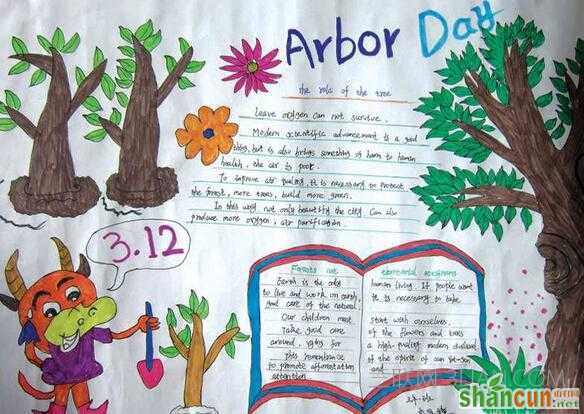 Arbor Day
the role of the tree
Leave oxygen can not survive.
Modern scientific advancement is a good
thing, but is also brings something of harm to human
health, the air is poor.
To improve air quality, it is necessary to protect
the forest, more trees, build more green.
In this way not only beautify the city Can also
produce more oxygen, air purification.
3.12
Forests are
Earth is the only
to live and work on earth,
and care of the natural.
Our children must
Take good care
around,
this remembrance
to promote afforestation
attention
human living. If people want
it is necessary to take
start with ourselves.
of the flowers and trees
a high-quality modern
of the spirit of
and
山村
shancun
.net